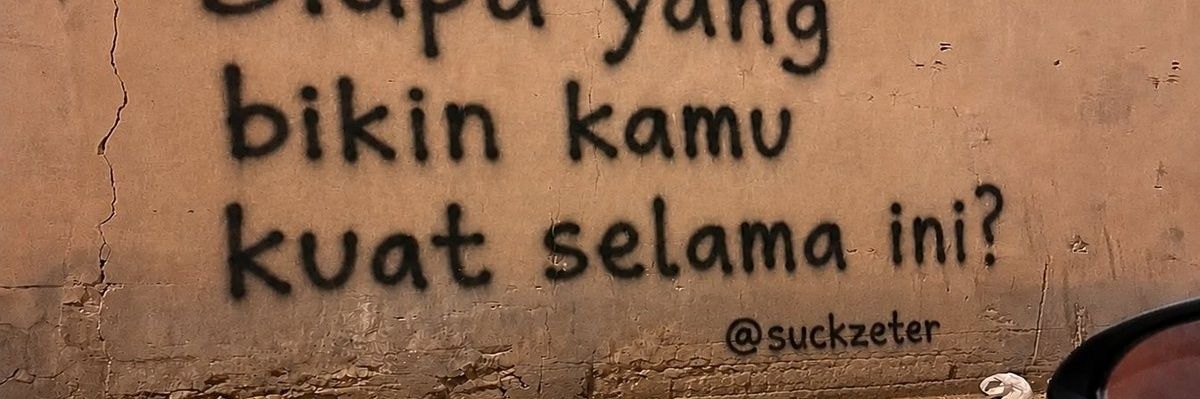 Siapa yang
bikin kamu
kuat selama ini?
@suckzeter